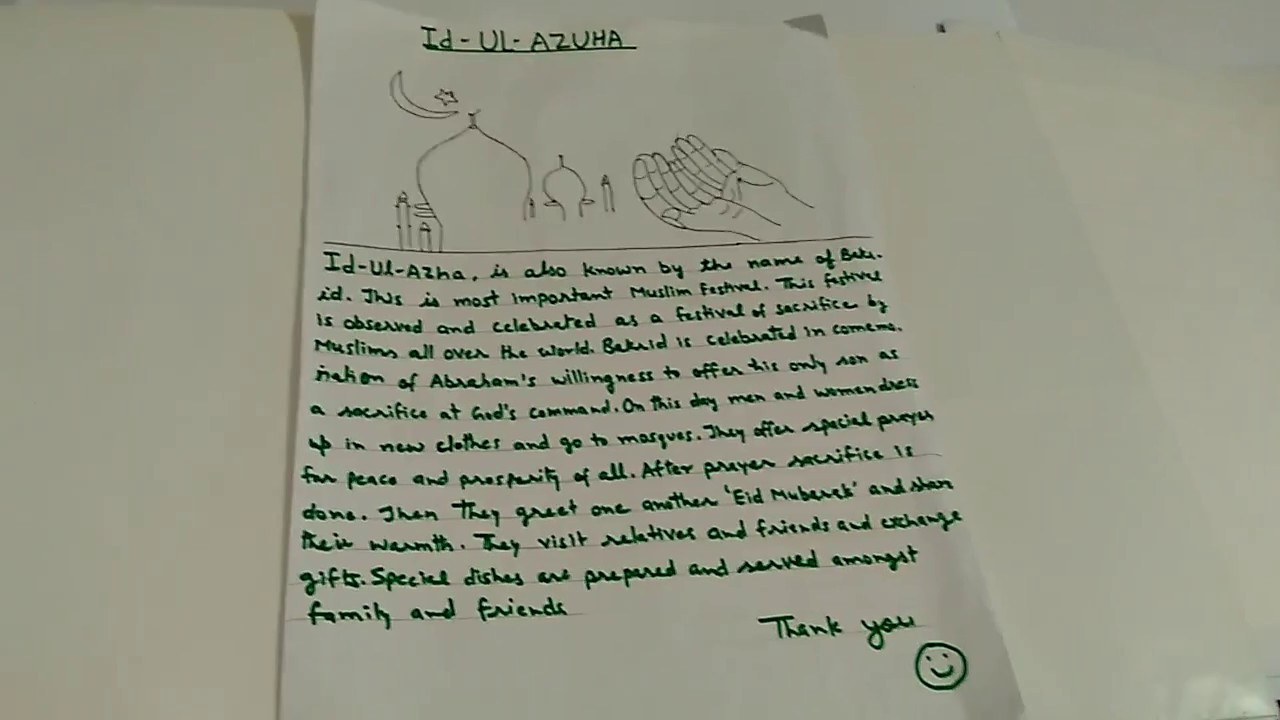 Id-UL-AZUHA
Id-Ul-Azha, is also known by the name of Bakr-
id. This is most important Muslim Festival. This festival
is observed and celebrated as a festival of sacrifice by
Muslims all over the world. Bakrid is celebrated in comemo-
ration of Abraham's willingness to offer his only son as
a sacrifice at God's command. On this day men and women dress
up in new clothes and go to mosques. They offer special prayer
for peace and prosperity of all. After prayer sacrifice is
done. Then they greet one another 'Eid Mubarak' and share
their warmth. They visit relatives and friends and exchange
gifts. Special dishes are prepared and served amongst
family and friends
Thank you